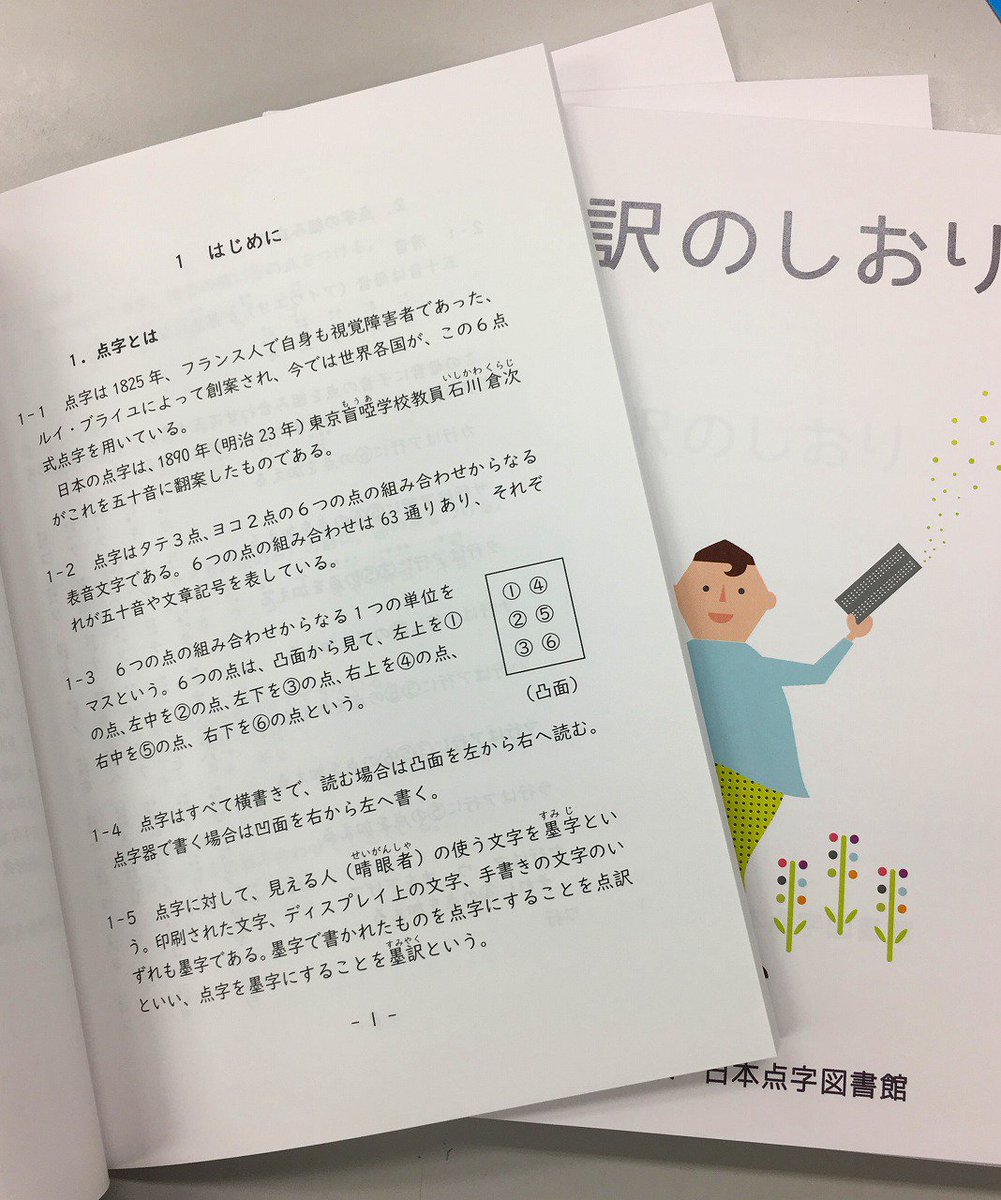 1　はじめに
1．点字とは
1-1　点字は1825年、フランス人で自身も視覚障害者であった、
ルイ・ブライユによって創案され、今では世界各国が、この６点
式点字を用いている。
日本の点字は、1890年（明治23年）東京盲啞学校教員石川倉次
もうあ
いしかわくらじ
がこれを五十音に翻案したものである。
1-2　点字はタテ３点、ヨコ２点の６つの点の組み合わせからなる
表音文字である。６つの点の組み合わせは63通りあり、それぞ
れが五十音や文章記号を表している。
1-3　６つの点の組み合わせからなる１つの単位を
マスという。６つの点は、凸面から見て、左上を①
の点、左中を②の点、左下を③の点、右上を④の点、
右中を⑤の点、右下を⑥の点という。
①④
②⑤
③⑥
（凸面）
1-4　点字はすべて横書きで、読む場合は凸面を左から右へ読む。
点字器で書く場合は凹面を右から左へ書く。
1-5　点字に対して、見える人（晴眼者）の使う文字を墨字とい
せいがんしゃ
すみじ
う。印刷された文字、ディスプレイ上の文字、手書きの文字のい
ずれも墨字である。墨字で書かれたものを点字にすることを点訳
といい、点字を墨字にすることを墨訳という。
すみやく
- 1 -
訳のしおり
日本点字図書館